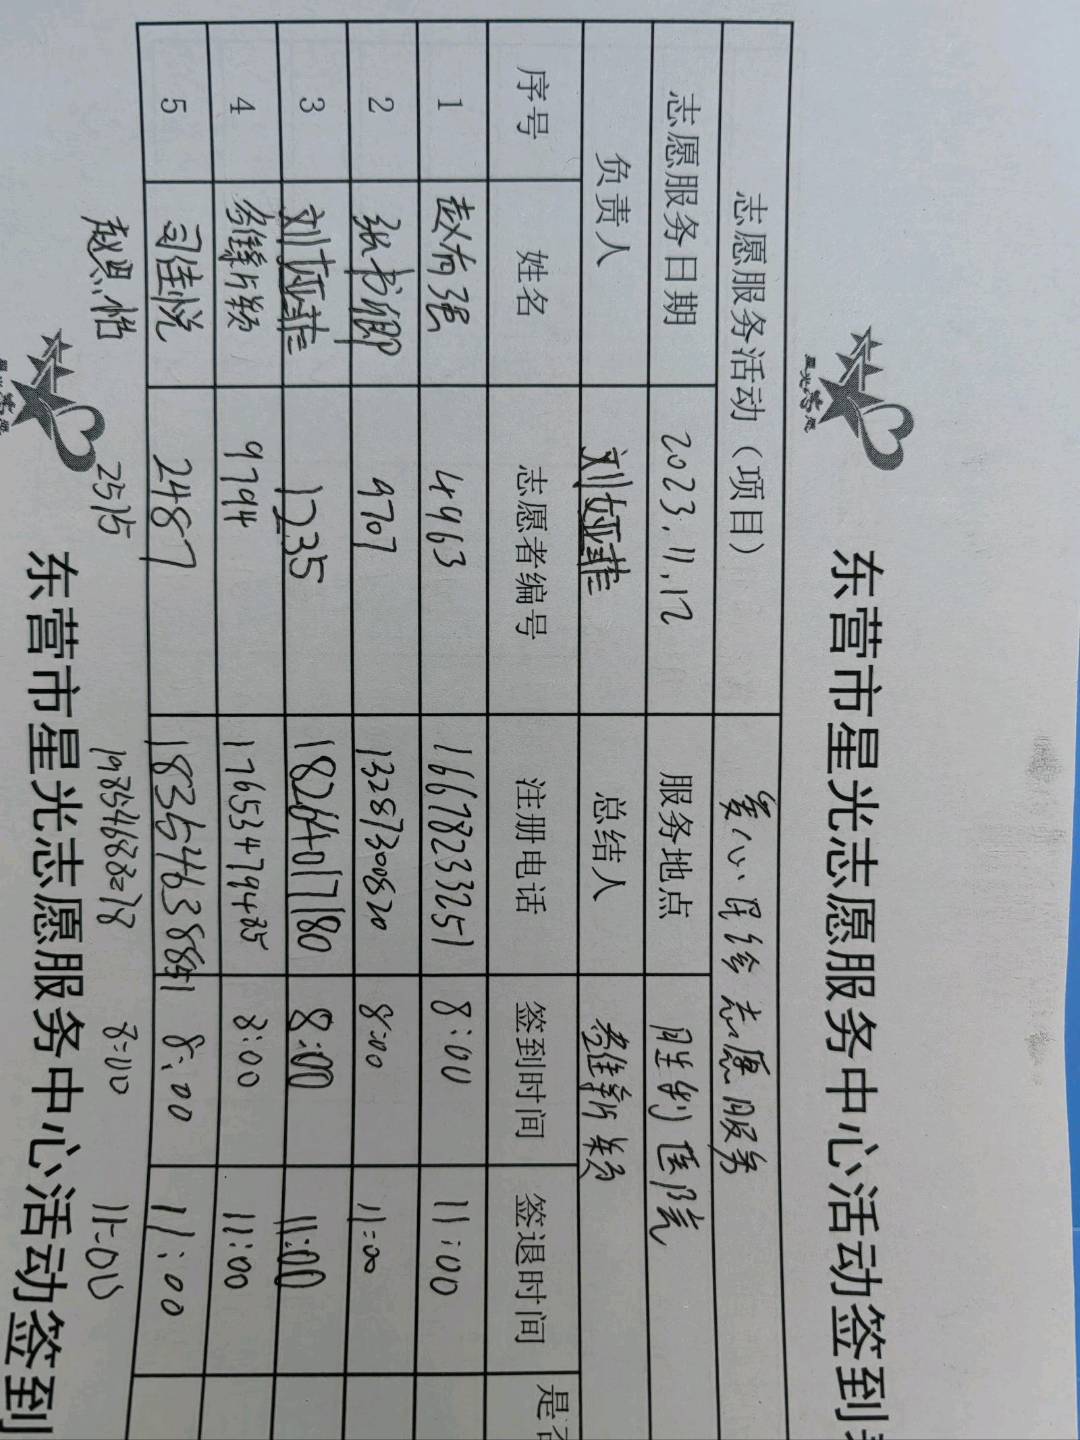 星光志愿
东营市星光志愿服务中心活动签到
志愿服务活动（项目） 爱心导诊志愿服务
志愿服务日期 2023.11.12 服务地点 胜利医院
负责人 刘娅菲 总结人
序号 姓名 志愿者编号 注册电话 签到时间 签退时间
1 赵有强 4963 16678233251 8:00 11:00
2 张书卿 9707 13287300820 8:00 11:00
3 刘娅菲 1235 18264017180 8:00 11:00
4 9794 8:00 11:00
5 司佳悦 2487 8:00 11:00
赵思恬 2515 8:00 11:00
东营市星光志愿服务中心活动签到